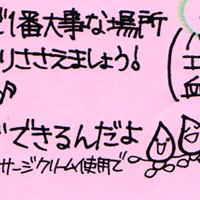 1番大事な場所
りささえましょう!
できるんだよ
サージクリーム使用で